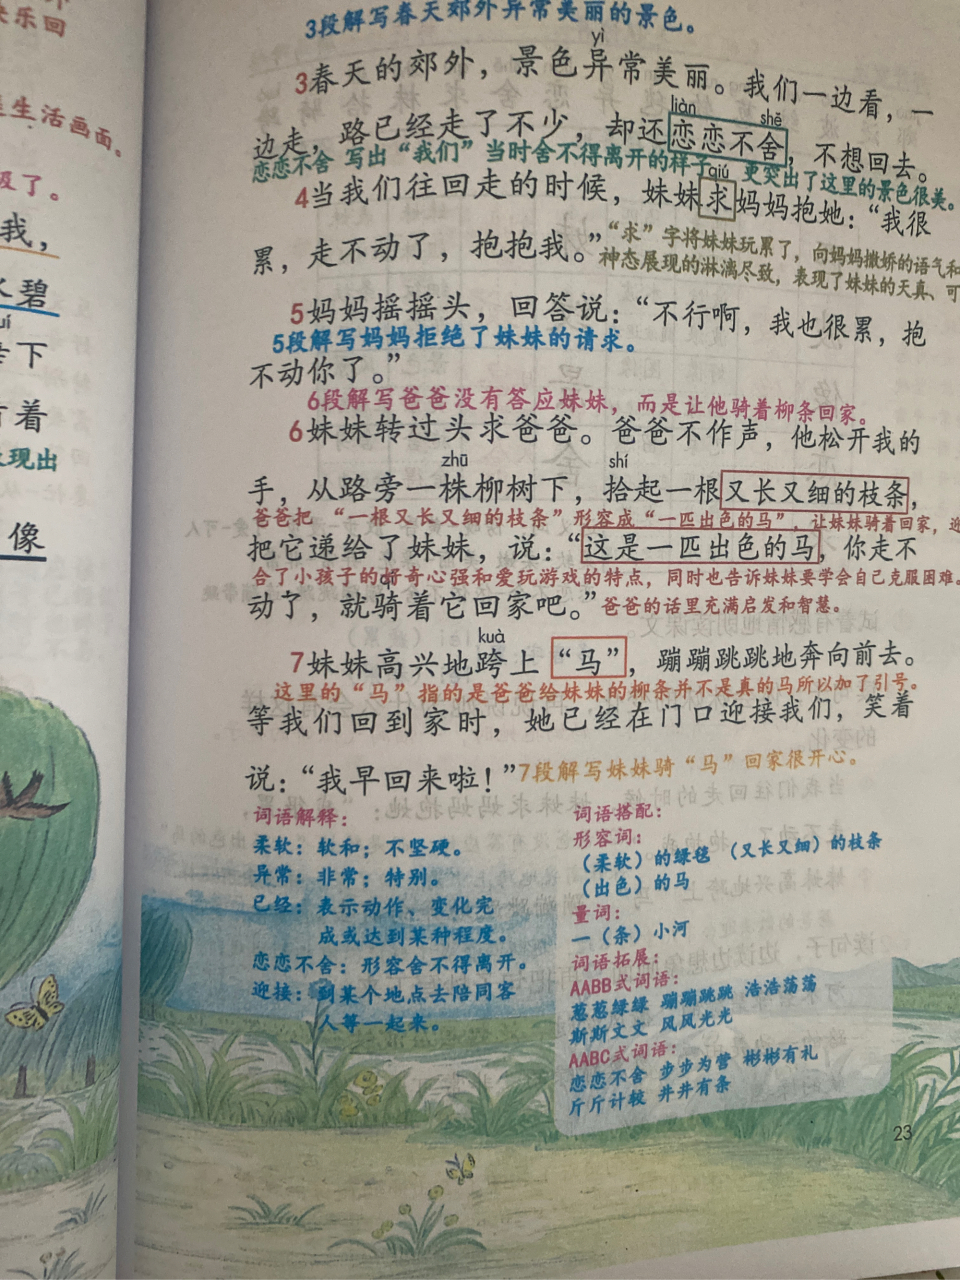 乐回
生活画面。
吸了。
我，
水碧
下
有着
现出
像
3段解写春天郊外异常美丽的景色。
yì
3春天的郊外，景色异常美丽。我们一边看，一
liàn shě
边走，路已经走了不少，却还恋恋不舍，不想回去。
恋恋不舍 写出“我们”当时舍不得离开的样子，更突出了这里的景色很美。
qiú
4当我们往回走的时候，妹妹求妈妈抱她：“我很
累，走不动了，抱抱我。”
“求”字将妹妹玩累了，向妈妈撒娇的语气和
神态展现的淋漓尽致，表现了妹妹的天真、可
5妈妈摇摇头，回答说：“不行啊，我也很累，抱
5段解写妈妈拒绝了妹妹的请求。
不动你了。”
6段解写爸爸没有答应妹妹，而是让他骑着柳条回家。
6妹妹转过头求爸爸。爸爸不作声，他松开我的
zhū shí
手，从路旁一株柳树下，拾起一根又长又细的枝条，
爸爸把“一根又长又细的枝条”形容成“一匹出色的马”，让妹妹骑着回家，迎
把它递给了妹妹，说：“这是一匹出色的马，你走不
合了小孩子的好奇心强和爱玩游戏的特点，同时也告诉妹妹要学会自己克服困难。
动了，就骑着它回家吧。”爸爸的话里充满启发和智慧。
kuà
7妹妹高兴地跨上“马”，蹦蹦跳跳地奔向前去。
这里的“马”指的是爸爸给妹妹的柳条并不是真的马所以加了引号。
等我们回到家时，她已经在门口迎接我们，笑着
说：“我早回来啦！”7段解写妹妹骑“马”回家很开心。
词语解释：
柔软：软和；不坚硬。
异常：非常；特别。
已经：表示动作、变化完
成或达到某种程度。
恋恋不舍：形容舍不得离开。
迎接：到某个地点去陪同客
人等一起来。
词语搭配：
形容词：
（柔软）的绿毯 （又长又细）的枝条
（出色）的马
量词：
一（条）小河
词语拓展：
AABB式词语：
葱葱绿绿 蹦蹦跳跳 浩浩荡荡
斯斯文文 风风光光
AABC式词语：
恋恋不舍 步步为营 彬彬有礼
斤斤计较 井井有条
23